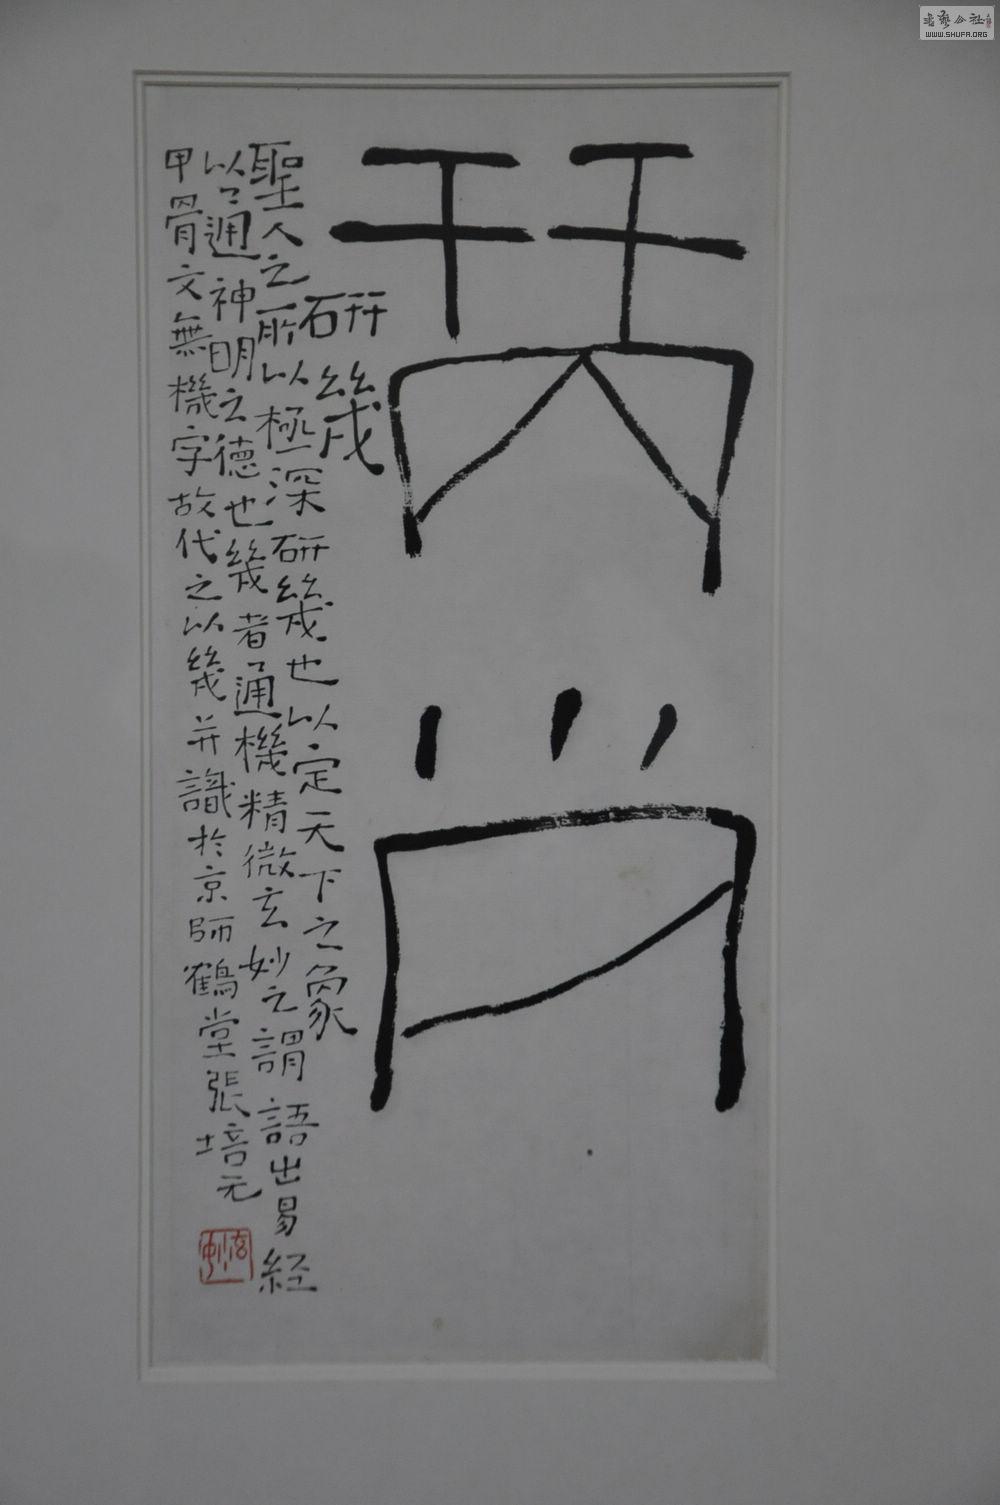 研幾
聖人之所以極深研幾也以定天下之象
以通神明之德也幾者通機精微玄妙之謂語出易経
甲骨文無機字故代之以幾并識於京師鶴堂張培元
书艺公社
WWW.SHUFA.ORG